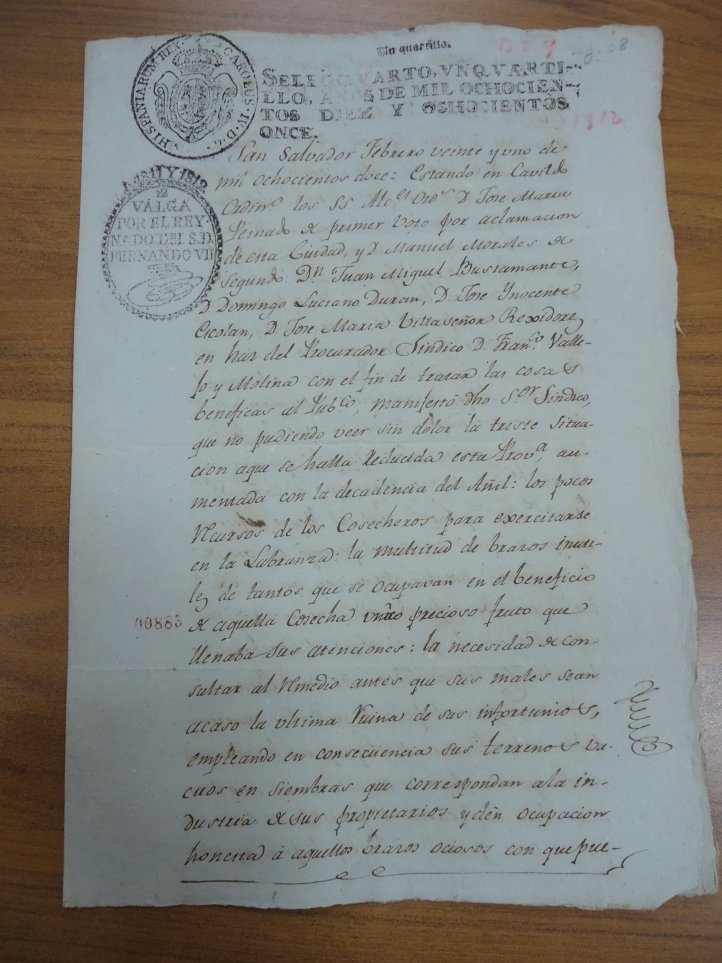 Un quartillo.
HISPANIARUM REX. CAROLUS IV D.G.
SELLO QVARTO, VN QVARTI-
LLO, AÑOS DE MIL OCHOCIEN-
TOS DIEZ Y OCHOCIENTOS
ONCE.
1812
Y 1812
VALGA
POR EL REY-
NADO DEL S.D.
FERNANDO VII
San Salvador Febrero veinte y uno de
mil ochocientos doce: Estando en Cavildo
Ordinº los SS Alcˢ Ordˢ D Jose Maria
Peinado de primer voto por aclamacion
de esta Ciudad, y D Manuel Morales de
Segundo. Dⁿ Juan Miguel Bustamante,
D Domingo Luciano Duran, D. Jose Ynocente
Escolan, D Jose Maria Villaseñor Rexidores
en haz del Procurador Sindico D. Franᶜᵒ Valle-
jo y Molina con el fin de tratar las cosas
beneficas al Pubᶜᵒ, manifestó dho Sᵒʳ Sindico,
que no pudiendo veer sin dolor la triste situa-
cion aque se halla reducida esta Provᵃ, au-
mentada con la decadencia del Añil: los pocos
recursos de los Cosecheros para exercitarse
en la Labranza: la multitud de brazos inuti-
les de tantos que se ocupavan en el beneficio
00883
de aquella Cosecha unico precioso fruto que
llenaba sus atenciones: la necesidad de con-
sultar al remedio antes que sus males sean
acaso la ultima ruina de sus infortunios,
empleando en consecuencia sus terrenos va-
cuos en siembras que correspondan ala in-
dustria de sus propietarios y dèn ocupacion
honesta á aquellos brazos ociosos con que pue-